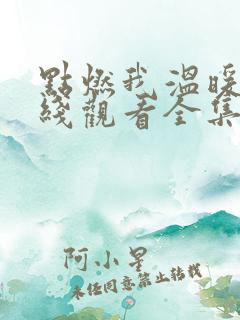 點燃我溫暖
綫觀看全集
阿小星
未經同意禁止转载